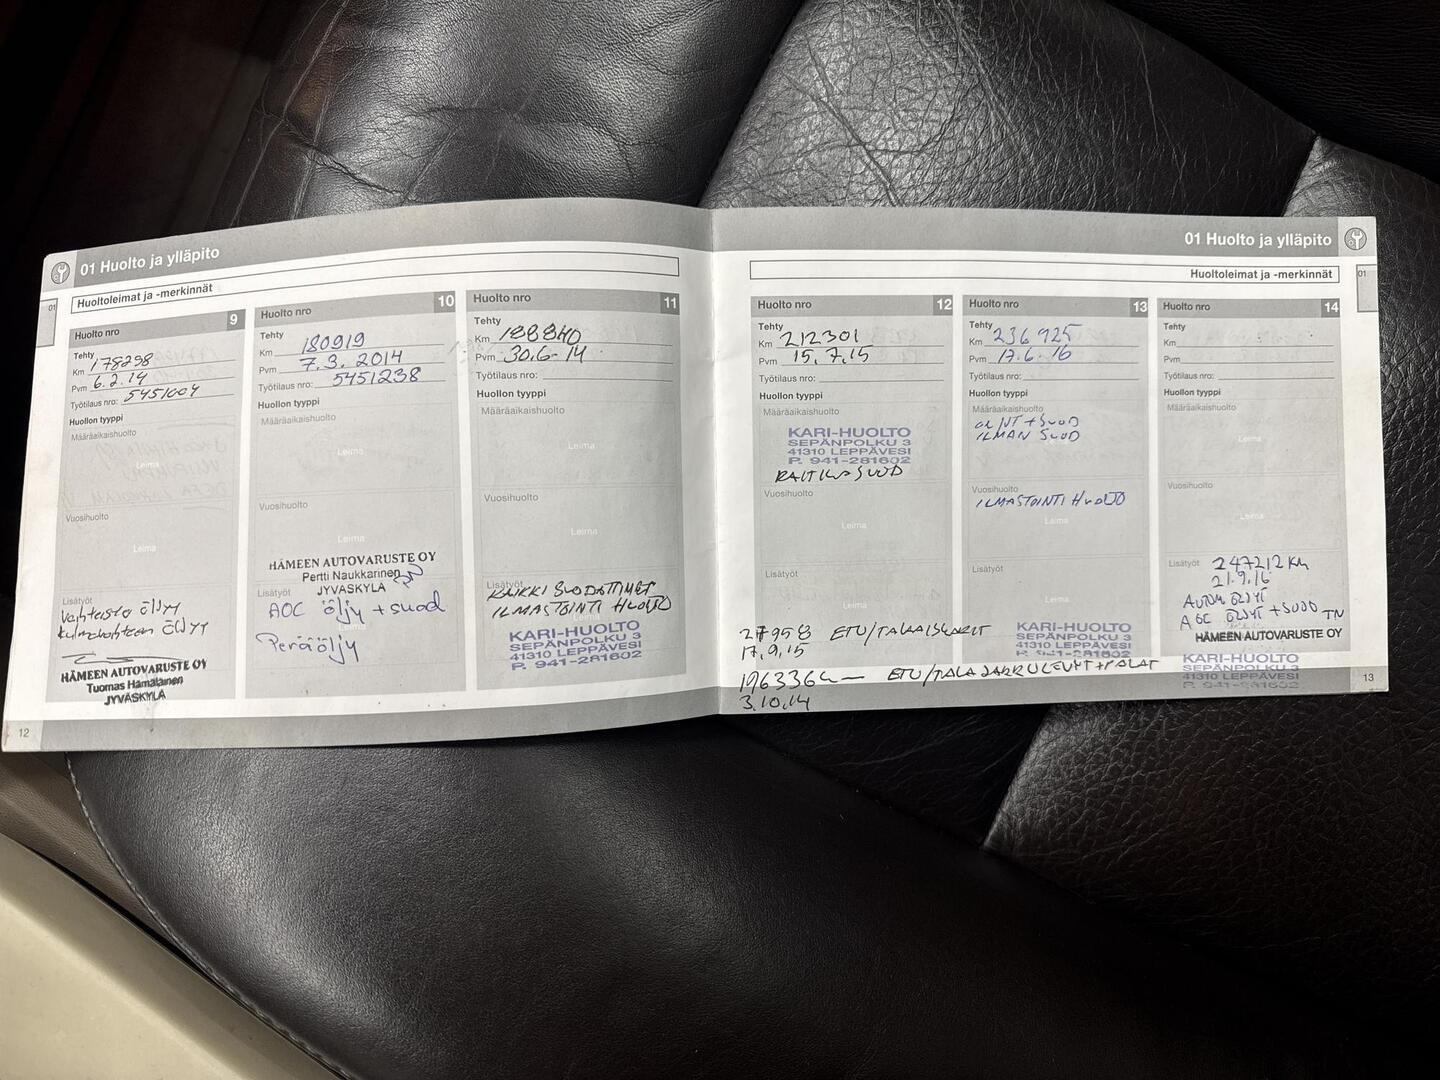 01 Huolto ja ylläpito
Huoltoleimat ja -merkinnät
01
Huolto nro 9
Tehty
Km 178298
Pvm 6.2.14
Työtilaus nro: 5451004
Huollon tyyppi
Määräaikaishuolto
Leima
Vuosihuolto
Leima
Lisätyöt
Vaihteisto öljy
öljyt
HÄMEEN AUTOVARUSTE OY
Tuomas Hämäläinen
JYVÄSKYLÄ
12
Huolto nro 10
Tehty
Km 180919
Pvm 7.3.2014
Työtilaus nro: 5451238
Huollon tyyppi
Määräaikaishuolto
Leima
Vuosihuolto
Leima
HÄMEEN AUTOVARUSTE OY
Pertti Naukkarinen
JYVÄSKYLÄ
Lisätyöt
AOC öljy + suod
Peräöljy
Huolto nro 11
Tehty
Km 188840
Pvm 30.6-14
Työtilaus nro:
Huollon tyyppi
Määräaikaishuolto
Leima
Vuosihuolto
Leima
Lisätyöt
KAIKKI SUODATTIMET
ILMASTOINTI HUOLTO
KARI-HUOLTO
SEPÄNPOLKU 3
41310 LEPPÄVESI
P. 941-281602
01 Huolto ja ylläpito
Huoltoleimat ja -merkinnät
01
Huolto nro 12
Tehty
Km 212301
Pvm 15.7.15
Työtilaus nro:
Huollon tyyppi
Määräaikaishuolto
KARI-HUOLTO
SEPÄNPOLKU 3
41310 LEPPÄVESI
P. 941-281602
RAITIS SUOD
Vuosihuolto
Leima
Lisätyöt
ETU/TAKAISKARIT
17.9.15
ETU/TAKA JARRULEVYT+PALAT
3.10.14
Huolto nro 13
Tehty
Km 236925
Pvm 17.6.16
Työtilaus nro:
Huollon tyyppi
Määräaikaishuolto
ÖLJYT + SUOD
ILMAN SUOD
Vuosihuolto
ILMASTOINTI HUOLTO
Leima
Lisätyöt
KARI-HUOLTO
SEPÄNPOLKU 3
41310 LEPPÄVESI
P. 941-281602
Huolto nro 14
Tehty
Km
Pvm
Työtilaus nro:
Huollon tyyppi
Määräaikaishuolto
Leima
Vuosihuolto
Leima
Lisätyöt 247212 Km
21.9.16
ÖLJYT
AOC ÖLJYT + SUOD TN
HÄMEEN AUTOVARUSTE OY
KARI-HUOLTO
SEPÄNPOLKU 3
41310 LEPPÄVESI
P. 941-281602
13